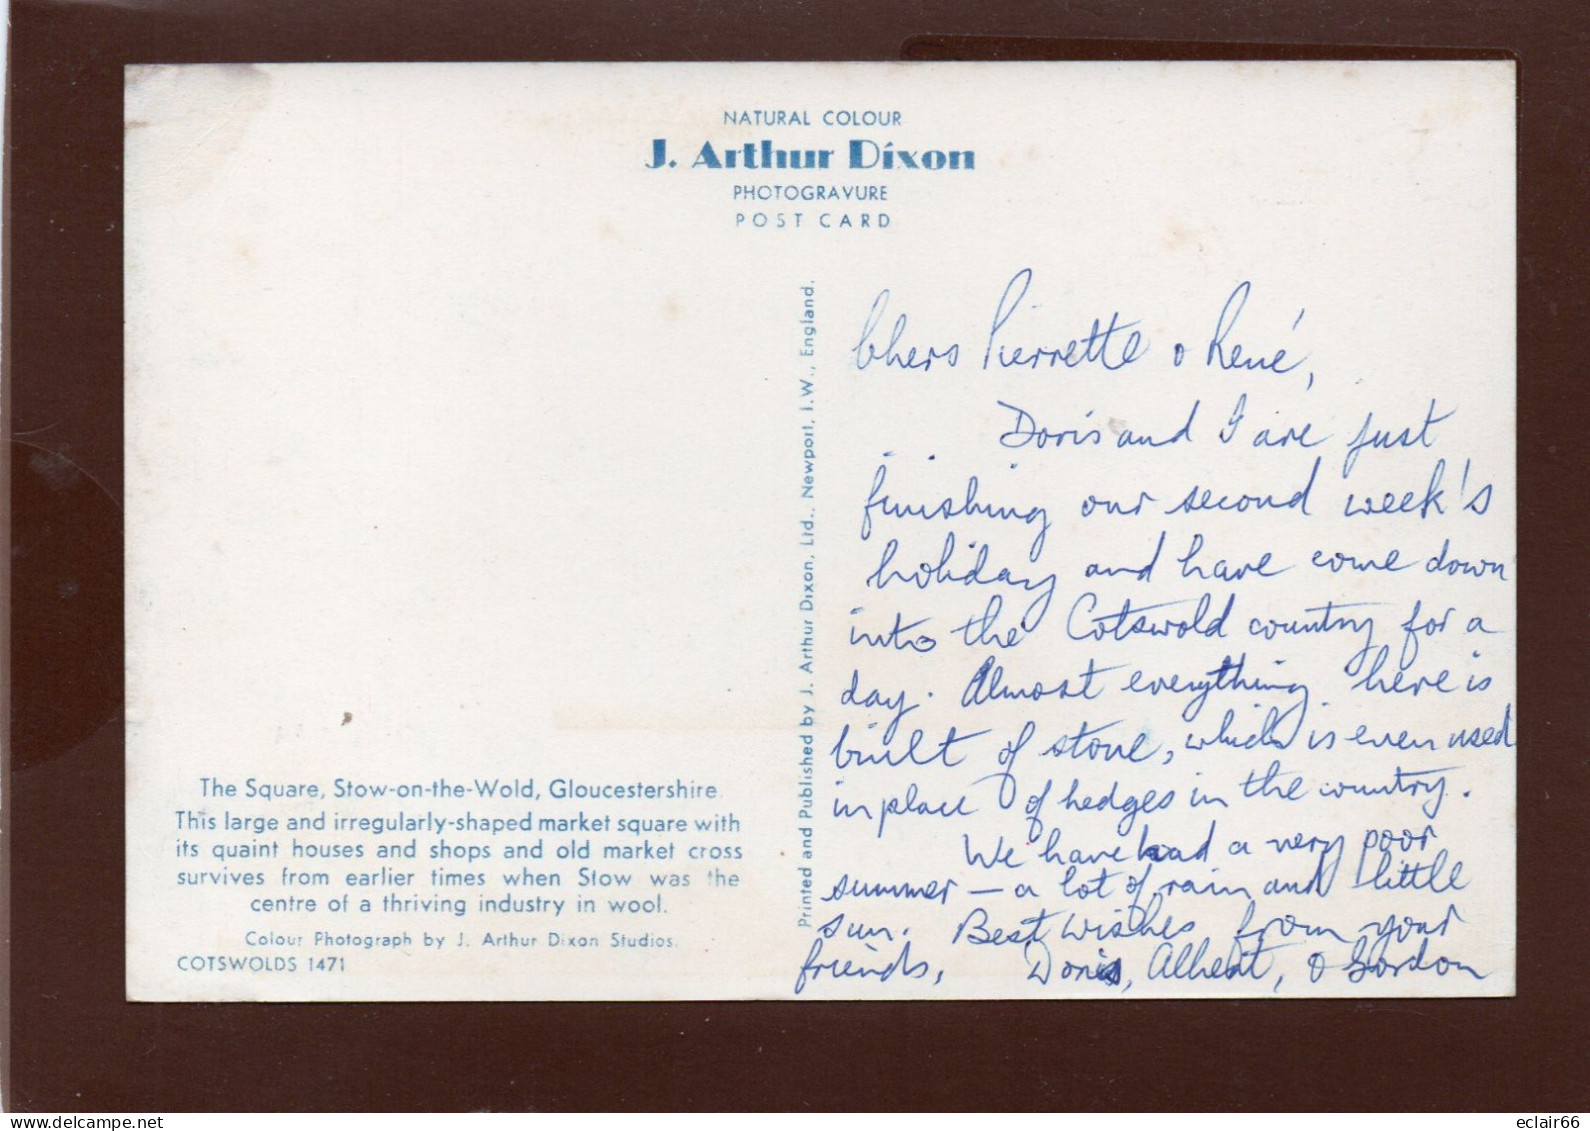 NATURAL COLOUR
J. Arthur Dixon
PHOTOGRAVURE
POST CARD
The Square, Stow-on-the-Wold, Gloucestershire.
This large and irregularly-shaped market square with
its quaint houses and shops and old market cross
survives from earlier times when Stow was the
centre of a thriving industry in wool.
Colour Photograph by J. Arthur Dixon Studios.
COTSWOLDS 1471
Printed and Published by J. Arthur Dixon, Ltd., Newport, I.W., England.
Chers Pierrette & René,
Doris and I are just
finishing our second week's
holiday and have come down
into the Cotswold country for a
day. Almost everything here is
built of stone, which is even used
in place of hedges in the country.
We have had a very poor
summer — a lot of rain and little
sun. Best wishes from your
friends, Doris, Albert, & Gordon
eclair66
delcampe.net